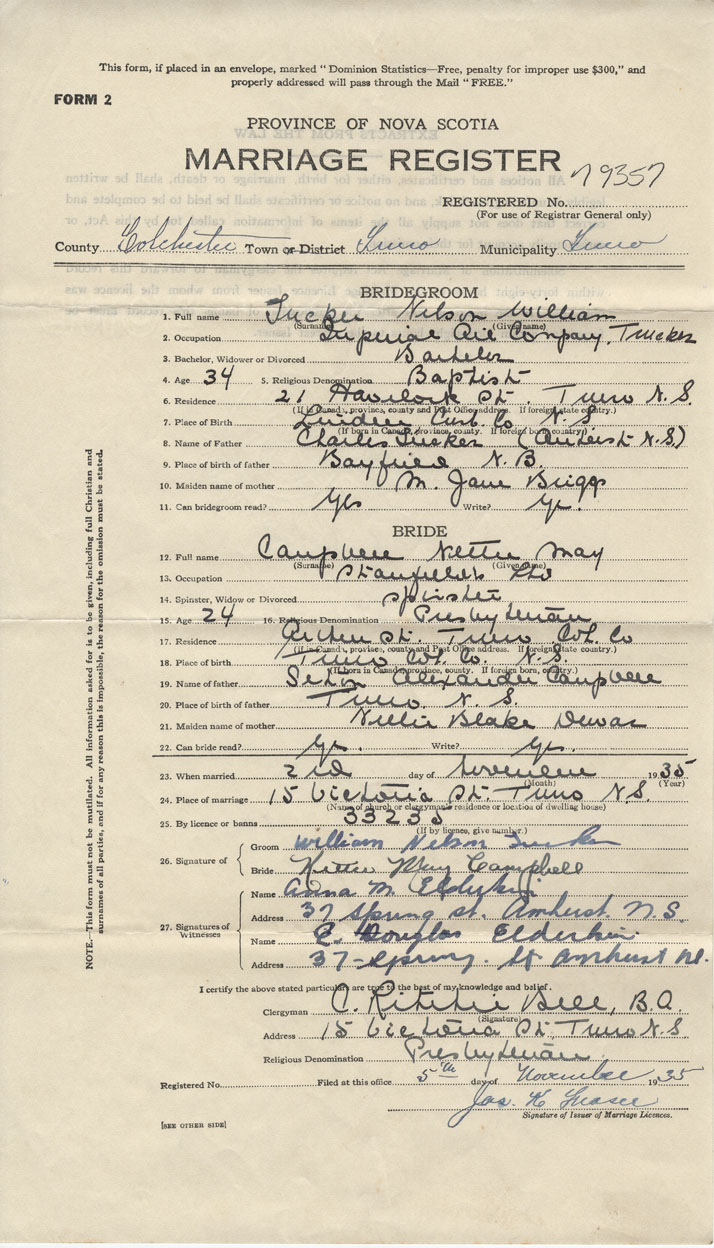 This form, if placed in an envelope, marked "Dominion Statistics—Free, penalty for improper use $300," and
properly addressed will pass through the Mail "FREE."
FORM 2
PROVINCE OF NOVA SCOTIA
MARRIAGE REGISTER
79357
REGISTERED No.
(For use of Registrar General only)
County Colchester Town or District Truro Municipality Truro
BRIDEGROOM
1. Full name Tucker Nelson William
(Surname) (Given name)
2. Occupation Imperial Oil Company, Trucker
3. Bachelor, Widower or Divorced Bachelor
4. Age 34 5. Religious Denomination Baptist
6. Residence 21 Havelock St. Truro N.S.
(If in Canada, province, county and Post Office address. If foreign state country.)
7. Place of Birth Linden Cumb. Co N.S.
(If born in Canada, province, county. If foreign born, country.)
8. Name of Father Charles Tucker (Amherst N.S)
9. Place of birth of father Bayfield N.B.
10. Maiden name of mother M. Jane Briggs
11. Can bridegroom read? Yes Write? Yes.
BRIDE
12. Full name Campbell Nettie May
(Surname) (Given name)
13. Occupation Stanfields Ltd
14. Spinster, Widow or Divorced spinster
15. Age 24 16. Religious Denomination Presbyterian
17. Residence St. Truro Col. Co
(If in Canada, province, county and Post Office address. If foreign state country.)
18. Place of birth Truro Col. Co. N.S.
(If born in Canada, province, county. If foreign born, country.)
19. Name of father Alexander Campbell
20. Place of birth of father Truro N.S.
21. Maiden name of mother Nellie Blake Dewar
22. Can bride read? Yes. Write? Yes.
23. When married 2nd day of November 1935
(Month) (Year)
24. Place of marriage 15 Victoria St. Truro N.S.
(Name of church or clergyman's residence or location of dwelling house)
25. By licence or banns 33235
(If by licence, give number.)
26. Signature of
Groom William Nelson Tucker
Bride Nettie May Campbell
27. Signatures of Witnesses
Name Anna M. Elderkin
Address 37 Spring St. Amherst. N.S.
Name E. Douglas Elderkin
Address 37-Spring St Amherst
I certify the above stated particulars are true to the best of my knowledge and belief.
Clergyman C. Ritchie Bell, B.A.
(Signature)
Address 15 Victoria St. Truro N.S
Religious Denomination Presbyterian
Registered No. Filed at this office 5th day of November 1935
Jas. K Fraser
Signature of Issuer of Marriage Licences.
[SEE OTHER SIDE]
NOTE.—This form must not be mutilated. All information asked for is to be given, including full Christian and
surnames of all parties, and if for any reason this is impossible, the reason for the omission must be stated.